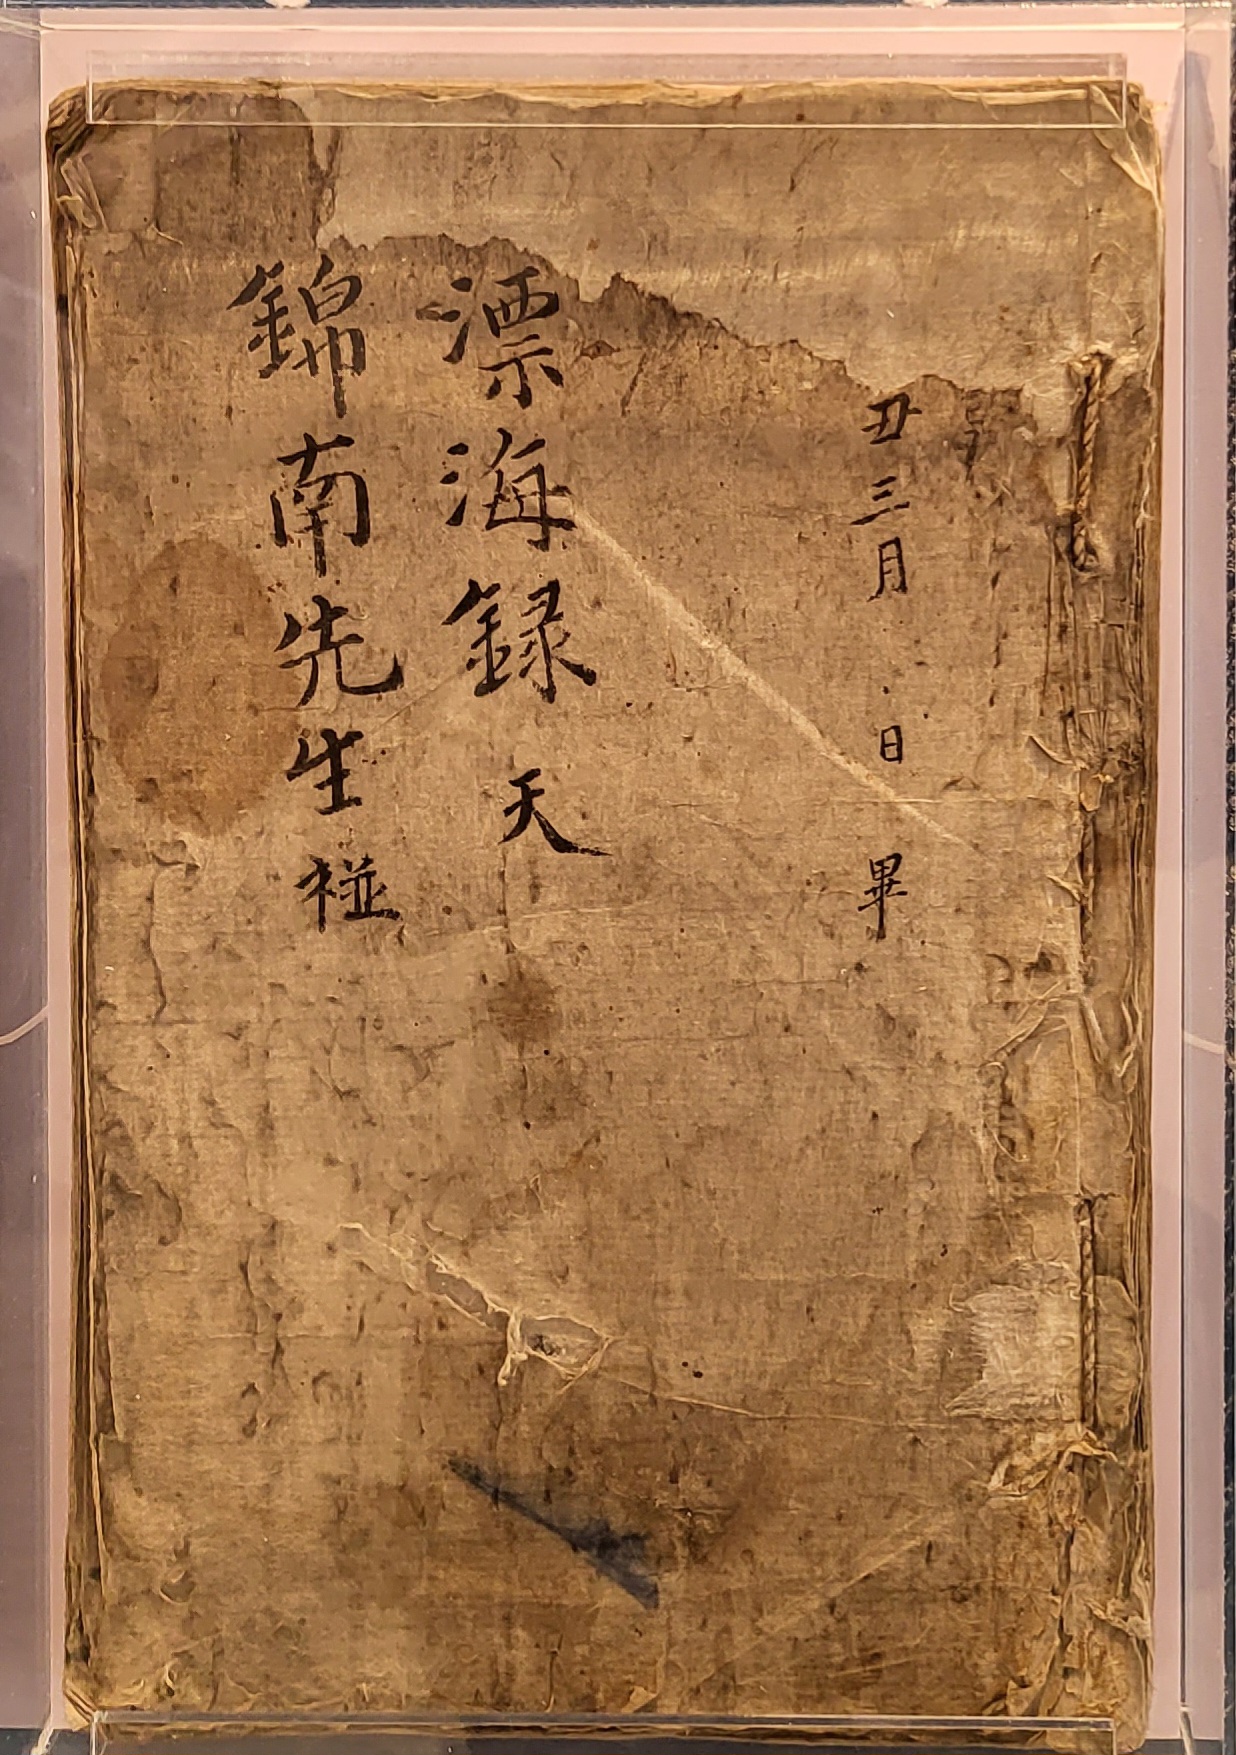 丑三月 日 畢
漂海録 天
錦南先生 𥚃